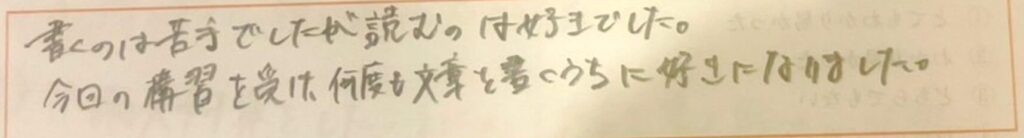 書くのは苦手でしたが読むのは好きでした。
今回の講習を受け、何度も文章を書くうちに好きになりました。